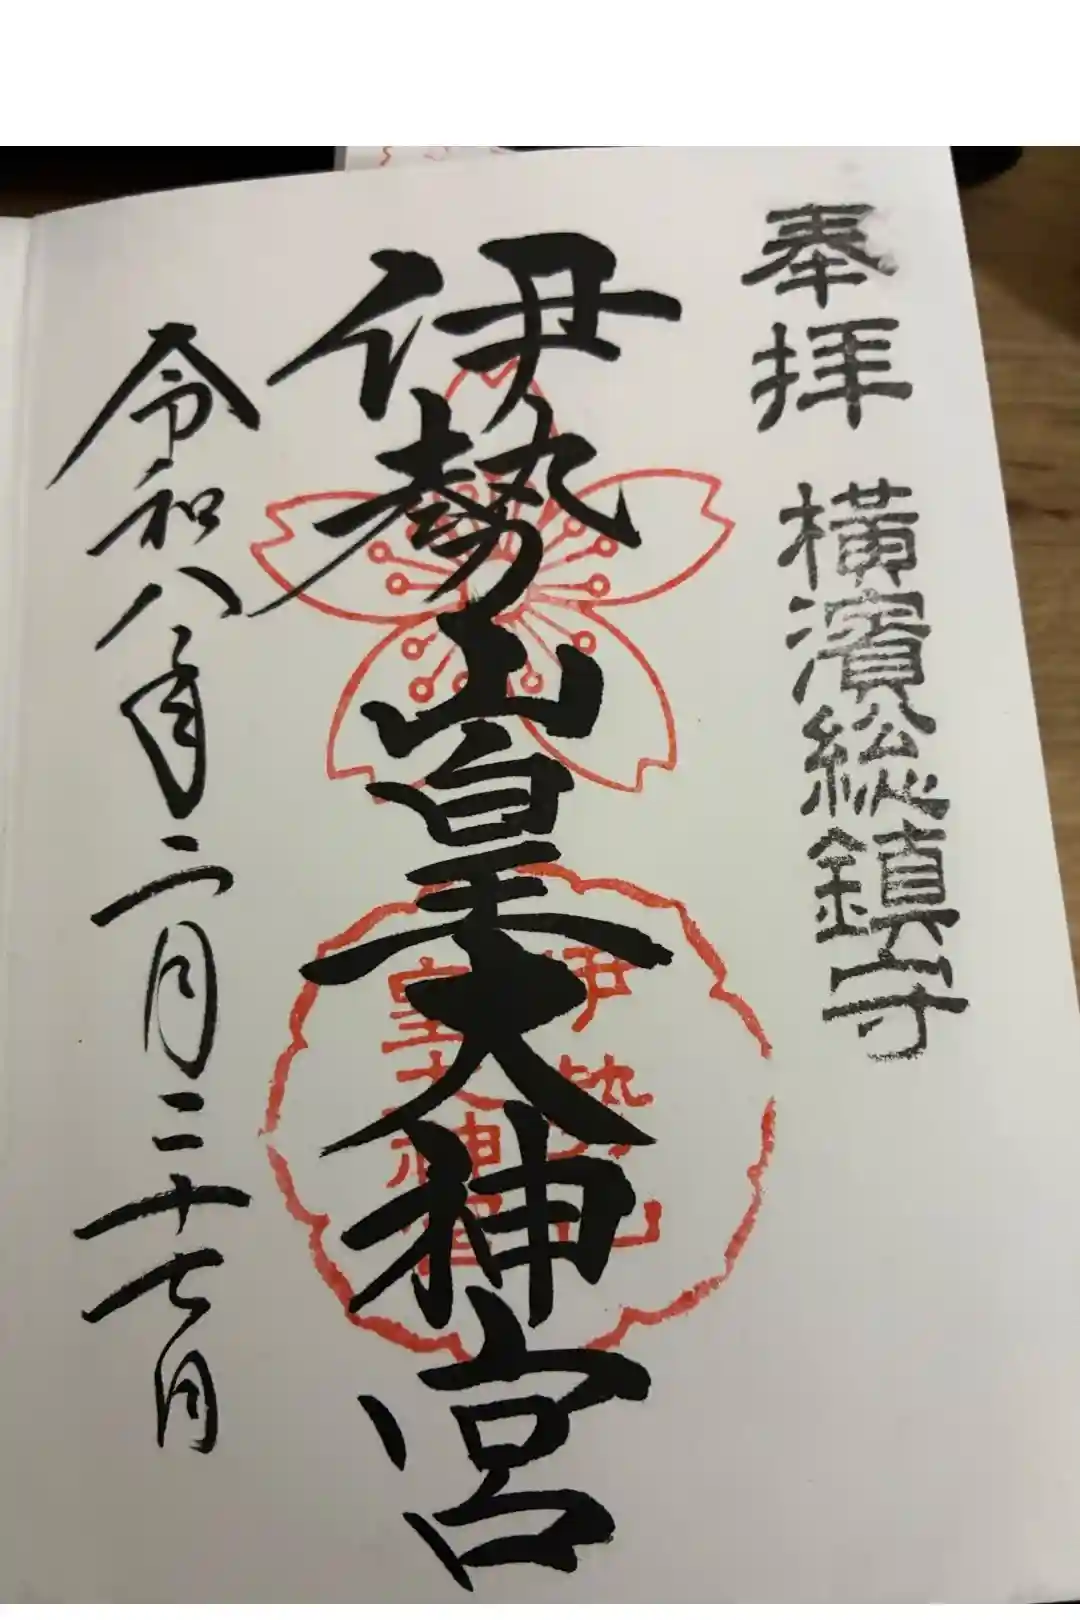 奉拝 横濱総鎮守
伊勢山皇大神宮
令和八年二月二十七日
伊勢山
皇大神宮